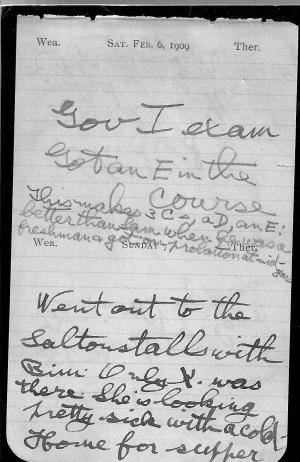 Wea. SAT. FEB. 6, 1909 Ther.
Gov I exam
Got an E in the
course
This makes 3 C's, a D, an E;
better than Sam when he was a
freshman & got on probation at mid-
Wea. SUNDAY 7 Ther.
Went out to the
Saltonstalls with
Bim. Only X. was
there She's looking
pretty sick with a cold-
Home for supper